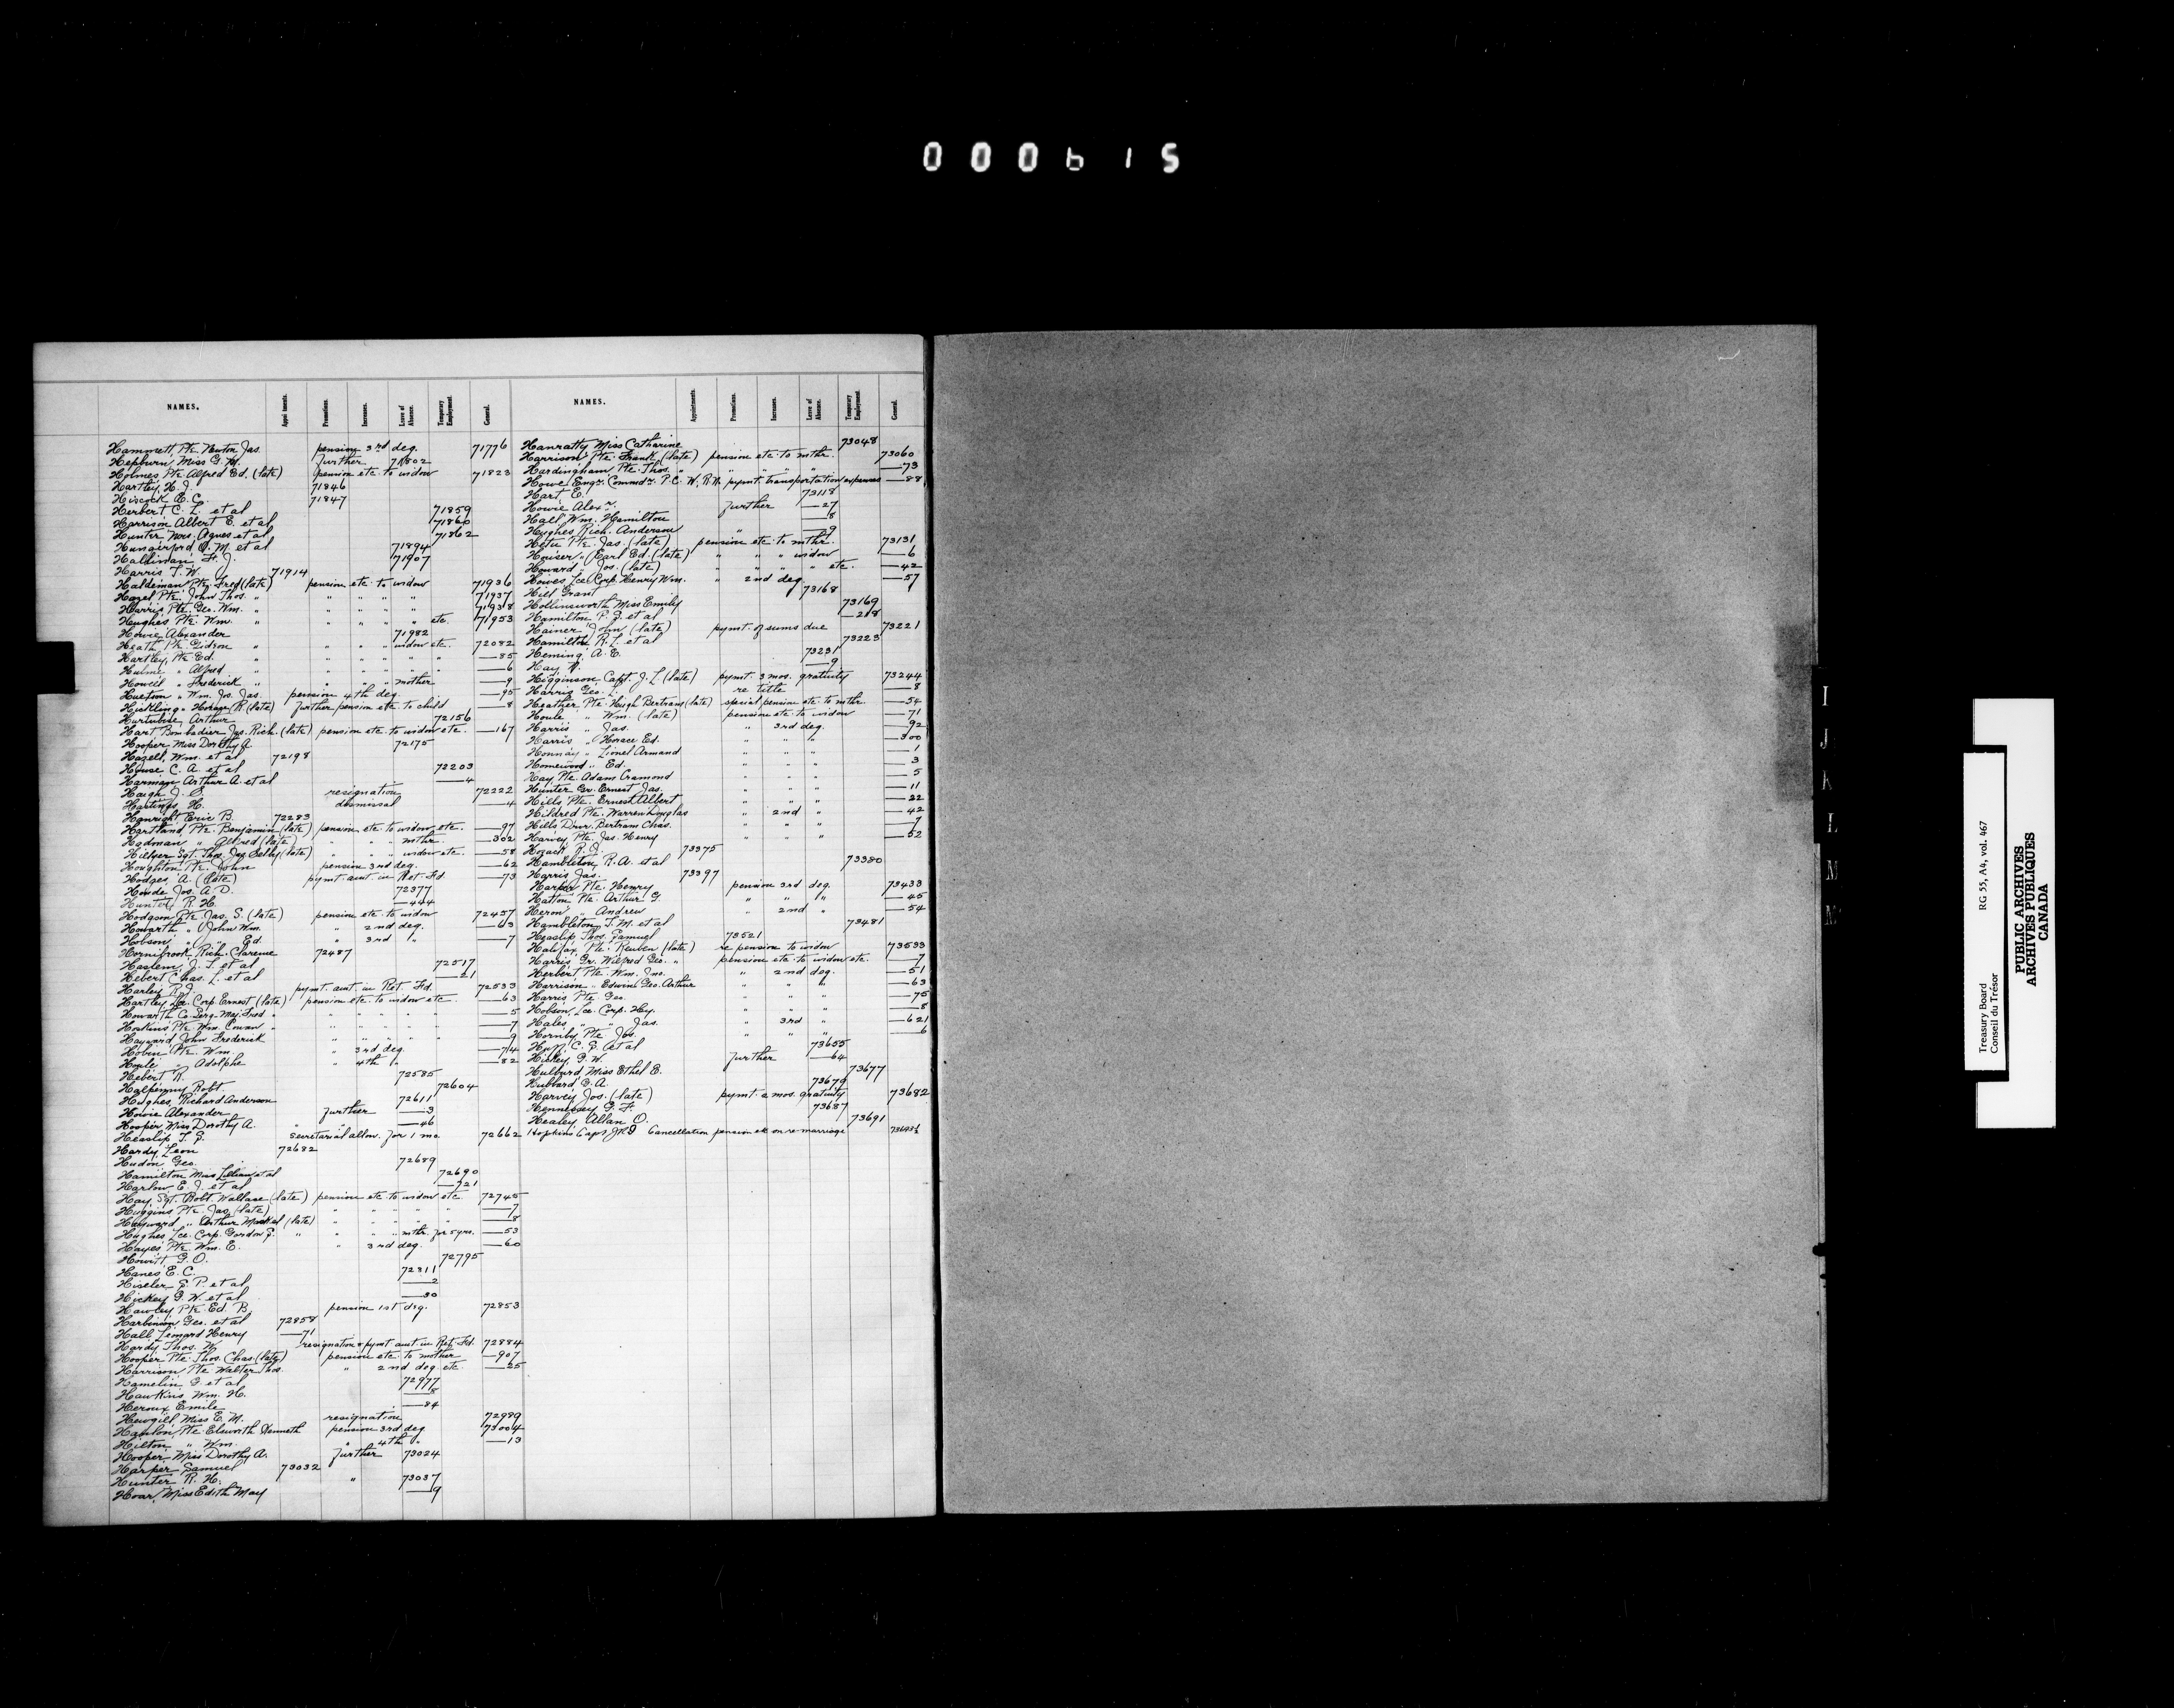 000615
NAMES. Appointments. Promotions. Increase. Leave of Absence. Temporary Employment. General.
Hammett, Pte. Newton Jas. pension 3rd deg. 71776
Hepburn, Miss G. M. further 71802
Holmes Pte. Alfred Ed. (late) pension etc. to widow 71823
Hartley, H. J. 71846
Hiscock E. C. 71847
Herbert C. L. et al 71859
Harrison Albert E. et al 71860
Hunter Mrs. Agnes et al 71862
Hungerford O. M. et al 71894
Haldiman F. J. 71907
Harris T. W. 71914
Haldeman Pte. Fred (late) pension etc. to widow 71936
Hazel Pte. John Thos. " " " " " 71937
Harris Pte. Geo. Wm. " " " " " 71938
Hughes Pte. Wm. " " " " " etc. 71953
Howie Alexander 71982
Heath Pte. Gideon " " " " widow etc. 72082
Hartley, Pte. Ed. " " " " " " —85
Hulme " Alfred " " " " " " —6
Howell " Frederick " " " " mother —9
Huetson " Wm. Jos. Jas. pension 4th deg. —95
Hickling " R. (late) further pension etc. to child —8
Hurtubise, Arthur 72156
Hart Bombadier Jas. Rich. (late) pension etc. to widow etc. —167
Hooper Miss Dorothy A. 72175
Hazell, Wm. et al 72198
House C. A. et al 72203
Harman Arthur A. et al —4
Haigh J. S. resignation 72222
Hastings H. dismissal —4
Hanright Eric B. 72283
Hartland Pte. Benjamin (late) pension etc. to widow etc. —97
Hadman " Alfred (late) " " " mother —302
Hillyer Sgt. Thos. Jas. Selby (late) " " " widow etc. —58
Houghton Pte. John pension 3rd deg. —62
Hodges A. (late) pymt. amt. in Ret. Fd. —73
Houde Jos. A. D. 72377
Hunter R. H. —444
Hodgson Pte. Jas. S. (late) pension etc. to widow 72457
Howarth " John Wm. " 2nd deg. —63
Hobson " Ed. " 3rd " —7
Hornibrook Rich. Clarence 72487
Haslem J. S. et al 72517
Hebert Chas. L. et al —21
Harley R. J. pymt. amt. in Ret. Fd. 72533
Hartley Lce. Corp. Ernest (late) pension etc. to widow etc. —63
Howarth Co. Serg. Maj. Fred " " " " " " —5
Hoskins Pte. Wm. Cowan " " " " " " —7
Hayward John Frederick " " " " " —9
Hobin Pte. Wm. " 3rd deg. —74
Houle " Adolphe " 4th " —82
Hebert R. 72585
Halpenny Robt. 72604
Hughes, Richard Anderson 72611
Howie Alexander further —3
Hooper Miss Dorothy A. " —46
Heaslip T. S. Secretarial allow. for 1 mo. 72662
Hardy, Leon 72682
Hudon Geo. 72689
Hamilton Miss Lillian et al 72690
Harlow E. J. et al —721
Hay Sgt. Robt. Wallace (late) pension etc. to widow etc. 72745
Huggins Pte. Jas. (late) " " " " " —7
Hayward " Arthur (late) " " " " " —8
Hughes Lce. Corp. Gordon S. " " " " mthr. for 5 yrs. —53
Hayes Pte. Wm. E. " 3rd deg. —60
Howitt G. O. 72795
Hanes E. C. 72811
Hiseler S. P. et al —2
Hickey G. W. et al —30
Hawley Pte. Ed. B. pension 1st deg. 72853
Harbinson Geo. et al 72858
Hall Leonard Henry —71
Hardy Thos. W. resignation & pymt. amt. in Ret. Fd. 72884
Hooper Pte. Thos. Chas. (late) pension etc. to mother —907
Harrison Pte. Walter Thos. " 2nd deg. etc. —25
Hamelin G. et al 72977
Hawkins Wm. H. —8
Heroux Emile —84
Hewgill Miss E. M. resignation 72989
Hanlon Pte. Elsworth Kenneth pension 3rd deg. 73004
Hilton " Wm. " 4th " —13
Hooper Miss Dorothy A. further 73024
Harper Samuel 73032
Hunter R. H. " 73037
Hoar, Miss Edith May —9
NAMES. Appointments. Promotions. Increase. Leave of Absence. Temporary Employment. General.
Hanratty Miss Catharine 73048
Harrison Pte. Frank (late) pension etc. to mthr. 73060
Hardingham Pte. Thos. " " " " " —73
Howe Engr. Commdr. P. C. W. R.N. pymt. transportation expenses —88
Hart E. 73118
Howie Alexr. further —27
Hall Wm. Hamilton —8
Hughes Rich. Anderson " —9
Hetu Pte. Jas. (late) pension etc. to mthr. 73131
Houser " Earl Ed. (late) " " " widow —6
Howard " Jos. (late) " " " " etc. —42
Howes Lce. Corp. Henry Wm. " 2nd deg. —57
Hill Grant 73168
Hollinsworth Miss Emily 73169
Hamilton P. J. et al —218
Hainer John (late) pymt. of sums due 73221
Hamilton R. L. et al 73223
Heming, A. E. 73231
Hay W. —9
Higginson Capt. J. L. (late) pymt. 3 mos. gratuity 73244
Harris Geo. L. re title —8
Heather Pte. Hugh Bertram (late) special pension etc. to mthr. —54
Houle " Wm. (late) pension etc. to widow —71
Harris " Jas. " 3rd deg. —92
Harris " Horace Ed. " " " —300
Honnay " Lionel Armand " " " —1
Homewood " Ed. " " " —3
Hay Pte. Adam Cramond " " " —5
Hunter Gr. Ernest Jas. " " " —11
Hills Pte. Ernest Albert " " " —22
Hildred Pte. Warren Douglas " 2nd " —42
Hills Drvr. Bertram Chas. " " " —7
Harvey Pte. Jas. Henry " " " —52
Hozack R. J. 73375
Hambleton R. A. et al 73380
Harris Jas. 73397
Harper Pte. Henry pension 3rd deg. 73433
Hatton Pte. Arthur G. " " " —45
Heron " Andrew " 2nd " —54
Hambleton J. M. et al 73481
Heaslip Thos. Samuel 73521
Halifax Pte. Reuben (late) re pension to widow 73533
Harris Gr. Wilfred Geo. " pension etc. to widow etc. —7
Herbert Pte. Wm. Jno. " 2nd deg. —51
Harrison " Edwin Geo. Arthur " " " —63
Harris Pte. Geo. " " " —75
Hobson Lce. Corp. Hy. " " " —8
Hales " " Jas. " 3rd " —621
Hornby Pte. Jos. " " " —6
Huff C. S. et al 73655
Hickey G. W. further —64
Hulburd Miss Ethel E. 73677
Hubbard G. A. 73679
Harvey Jos. (late) pymt. 2 mos. gratuity 73682
Hennessey G. F. 73687
Healey Allan O. 73691
Hopkins Capt. Cancellation pension etc. on re-marriage 73693½
I
J
K
L
M
Treasury Board RG 55, A4, vol. 467
Conseil du Trésor
PUBLIC ARCHIVES
ARCHIVES PUBLIQUES
CANADA